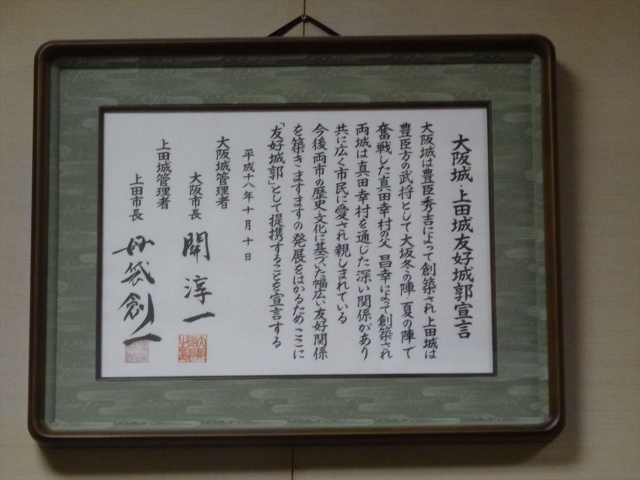 大阪城・上田城友好城郭宣言
大阪城は豊臣秀吉によって創築され上田城は
豊臣方の武将として大坂冬の陣 夏の陣で
奮戦した真田幸村の父 昌幸によって創築され
両城は真田幸村を通した深い関係があり
共に広く市民に愛され親しまれている
今後両市の歴史・文化に基づいた幅広い友好関係
を築きますますの発展をはかるためここに
「友好城郭」として提携することを宣言する
平成十八年十月十日
大阪城管理者
大阪市長 關淳一
上田城管理者
上田市長 母袋創一